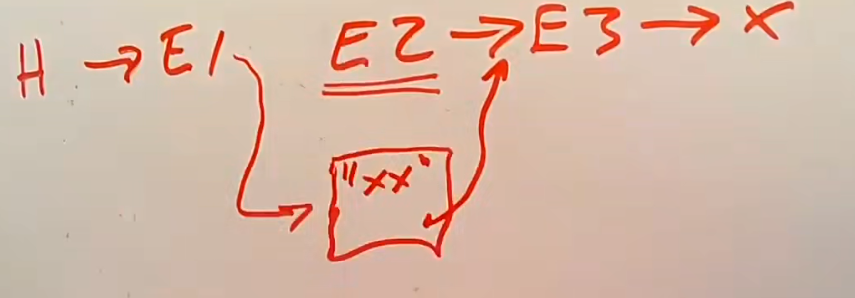 H → E1 E2 → E3 → X
"xx"